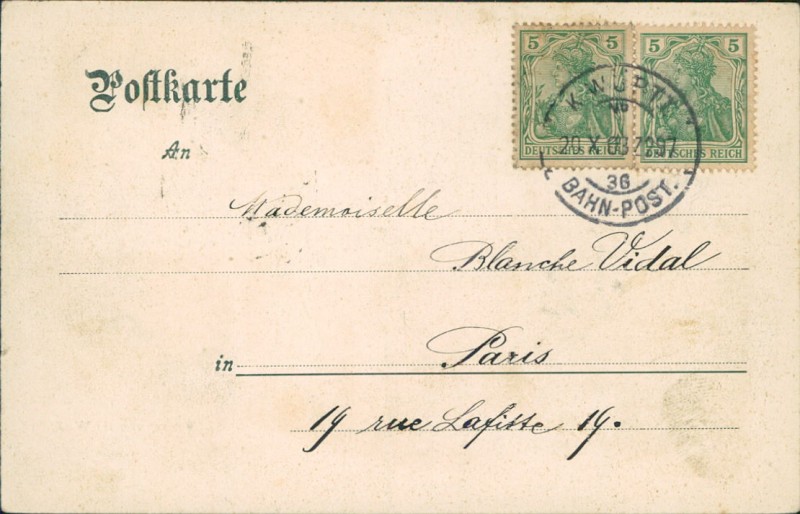 5 5 5 5
DEUTSCHES REICH DEUTSCHES REICH
K. WÜRTT.
20 X 03
36
BAHN-POST.
Postkarte
An
Mademoiselle
Blanche Vidal
in Paris
19 rue Lafitte 19.